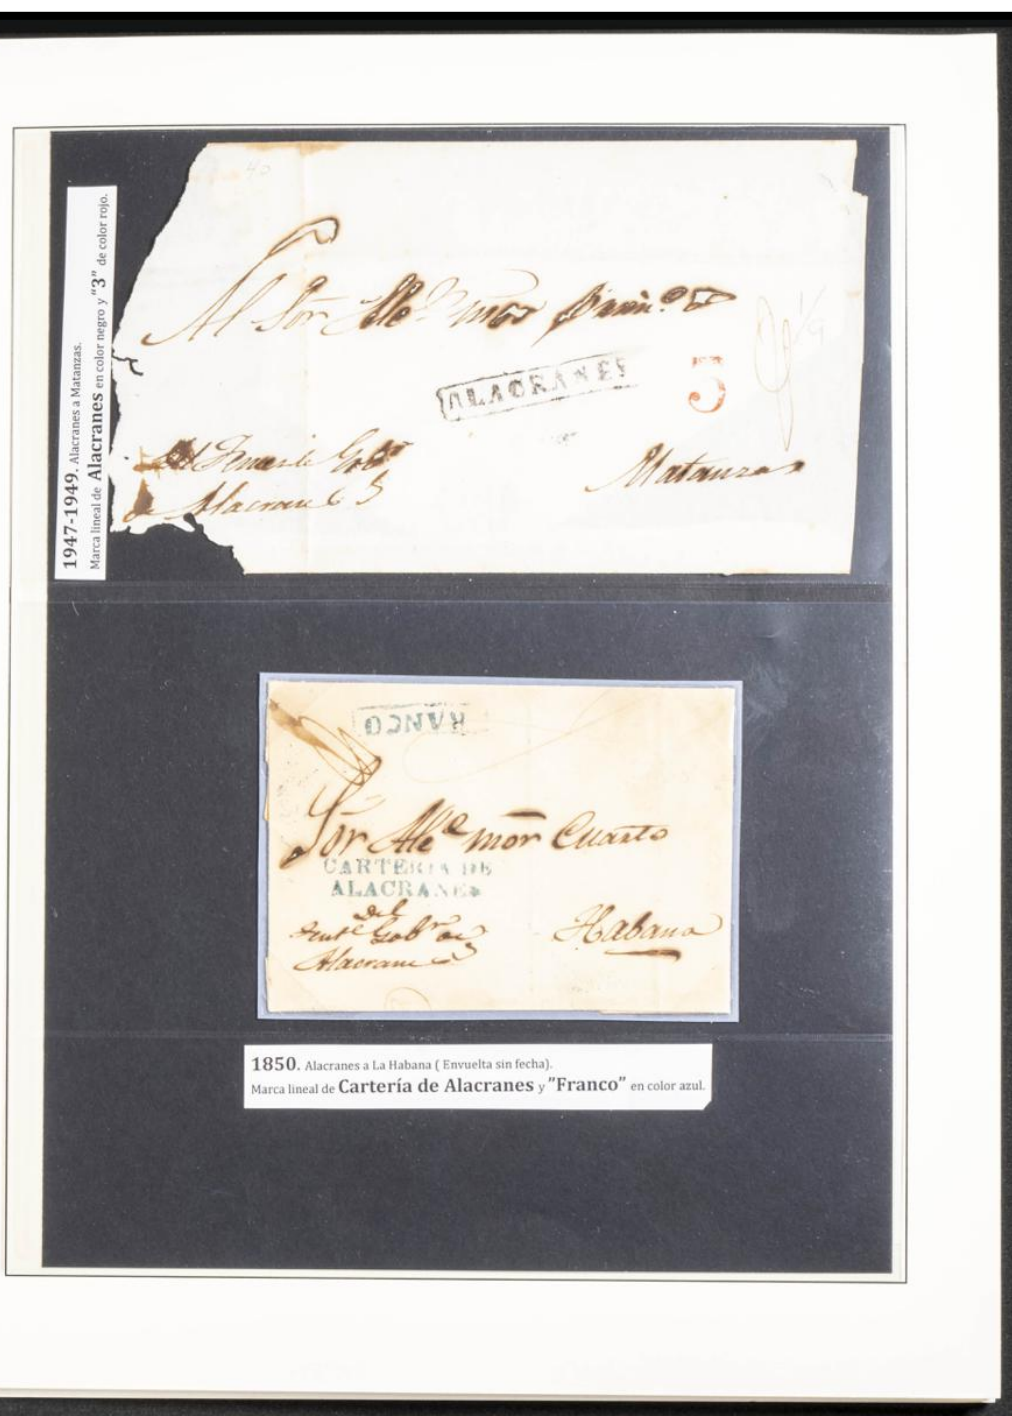 1947-1949. Alacranes a Matanzas.
Marca lineal de Alacranes en color negro y "3" de color rojo.
40
Al Sor Alce mor Prim.o
ALACRANES
3
Del Teniente Gobor
de Alacranes
Matanzas
FRANCO
Sor Alce mor Cuarto
CARTERIA DE
ALACRANES
Del
Tente Gobr de
Alacranes
Habana
1850. Alacranes a La Habana ( Envuelta sin fecha).
Marca lineal de Cartería de Alacranes y "Franco" en color azul.